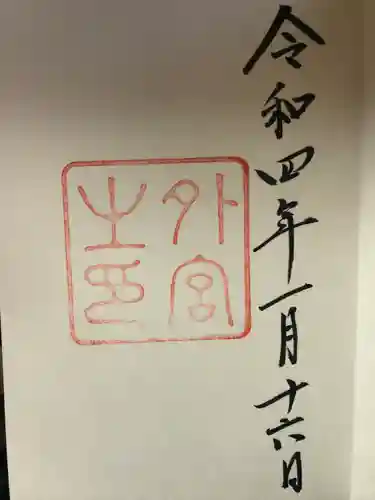 令和四年一月十六日
外宮之印